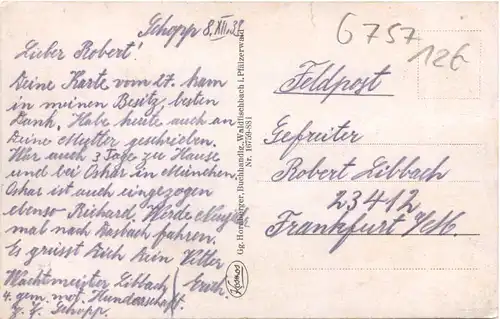 Schopp 8.XII.39
Lieber Robert!
Deine Karte vom 27. kam
in meinen Besitz, besten
Dank. Habe heute auch an
Deine Mutter geschrieben.
War auch 3 Tage zu Hause
und bei Oskar in München.
Oskar ist auch eingezogen
ebenso Richard, Werde
mal nach fahren.
Es grüsst Dich Dein Vetter
Wachtmeister Libbach Erich.
4. gem. mot. Hundertschaft
z. Z. Schopp.
Gg. Hornberger, Buchhandlg., Waldfischbach i. Pfälzerwald
Nr. 16759-881
Kosmos
6757
126
Feldpost
Gefreiter
Robert Libbach
23412
Frankfurt a/M.